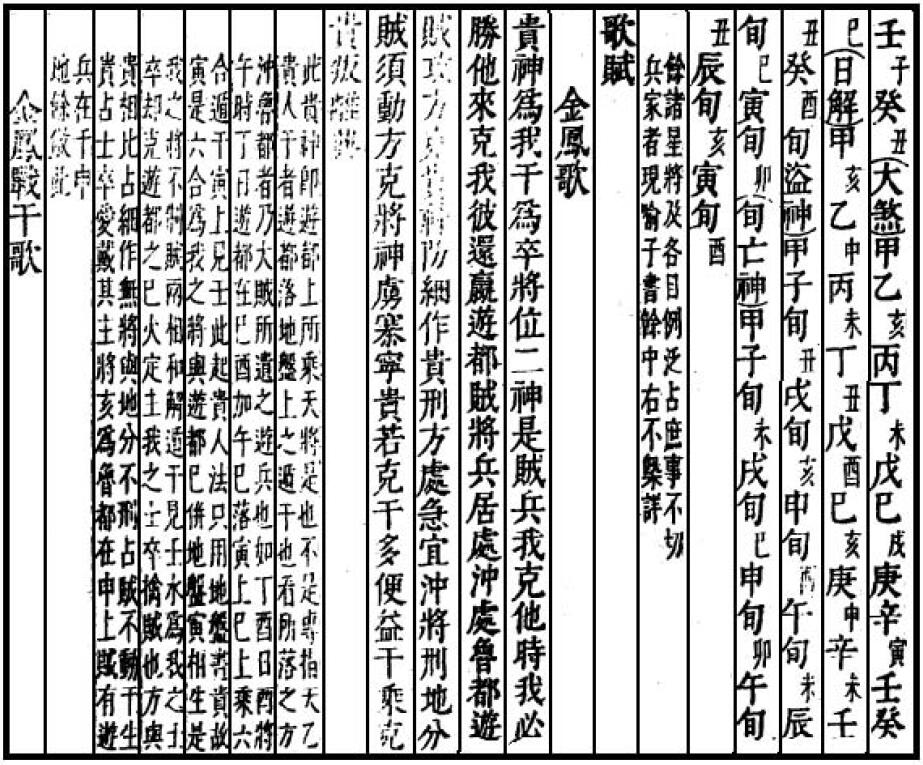 壬子癸丑(大煞)甲乙亥丙丁未戊巳戌庚辛寅壬癸
巳(日解)甲亥乙申丙未丁丑戊酉巳亥庚申辛未壬
丑癸酉旬盜神)甲子旬丑戌旬亥申旬酉午旬未辰
旬巳寅旬卯(旬亡神)甲子旬未戌旬巳申旬卯午旬
丑辰旬亥寅旬酉
餘諸星將及各目例泛占庶事不切
兵家者現喻子書餘中右不槩詳
歌賦
金鳳歌
貴神為我干為卒將位二神是賊兵我克他時我必
勝他來克我彼還嬴遊都賊將兵居處沖處魯都遊
賊攻方來貴防細作貴刑方處急宜沖將刑地分
賊須動方克將神虜寨寧貴若克干多便益干乘克
貴叛離
此貴神即遊都上所乘天將是也不是專指天乙
貴人干者遊都落地盤上之遁干也看所落之方
沖魯都者乃大賊所遺之遊兵也如丁酉日酉將
午時丁日遊都在巳酉加午巳落寅上巳上乘六
合遁干寅上見壬此起貴人法只用地盤晝貴故
寅是六合為我之將與遊都巳併地盤寅相生是
我之將不制賊兩相和解遁干見壬水為我之士
卒却克遊都之巳火定主我之士卒擒賊也方與
貴相比占細作無將與地分不刑占賊不動干生
貴占士卒愛戴其主將亥為魯都在申上賊有遊
兵在于申
地餘倣此
金鳳戰干歌